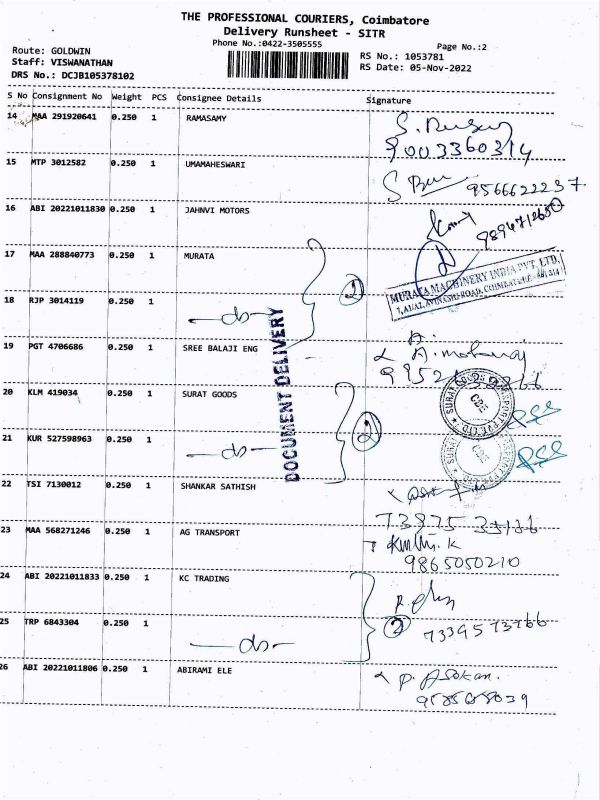 THE PROFESSIONAL COURIERS, Coimbatore
Delivery Runsheet - SITR
Phone No.:0422-3505555
Page No.:2
Route: GOLDWIN
Staff: VISWANATHAN
DRS No.: DCJB105378102
RS No.: 1053781
RS Date: 05-Nov-2022
S No Consignment No Weight PCS Consignee Details Signature
14 MAA 291920641 0.250 1 RAMASAMY
9003360314
15 MTP 3012582 0.250 1 UMAMAHESWARI
9566622237
16 ABI 20221011830 0.250 1 JAHNVI MOTORS
9894712650
17 MAA 288840773 0.250 1 MURATA
2
MURATA MACHINERY INDIA PVT. LTD.
AVINASHI ROAD, COIMBATORE
18 RJP 3014119 0.250 1 -do-
DOCUMENT DELIVERY
19 PGT 4706686 0.250 1 SREE BALAJI ENG
20 KLM 419034 0.250 1 SURAT GOODS
SURAT GOODS TRANSPORT PVT LTD
CBE
2
21 KUR 527598963 0.250 1 -do-
CBE
22 TSI 7130012 0.250 1 SHANKAR SATHISH
73975 33176
23 MAA 568271246 0.250 1 AG TRANSPORT
9865050210
24 ABI 20221011833 0.250 1 KC TRADING
2
25 TRP 6843304 0.250 1 -do-
7339573766
26 ABI 20221011806 0.250 1 ABIRAMI ELE
P. Asokan.